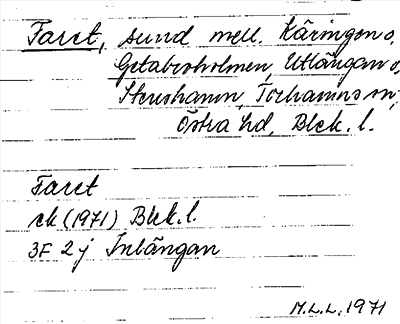 Faret, sund mell. Käringen o,
Getabroholmen, Utlängan o,
Stenshamn, Torhamns sn,
Östra hd, Blek. l.
Faret
ek (1971) Blek. l.
3F 2 j Inlängan
M.L.L. 1971